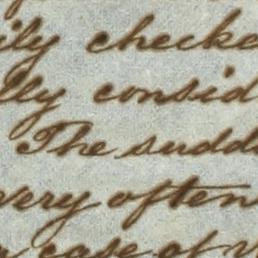 ily checke
lly consid
The sudd
very often
case of